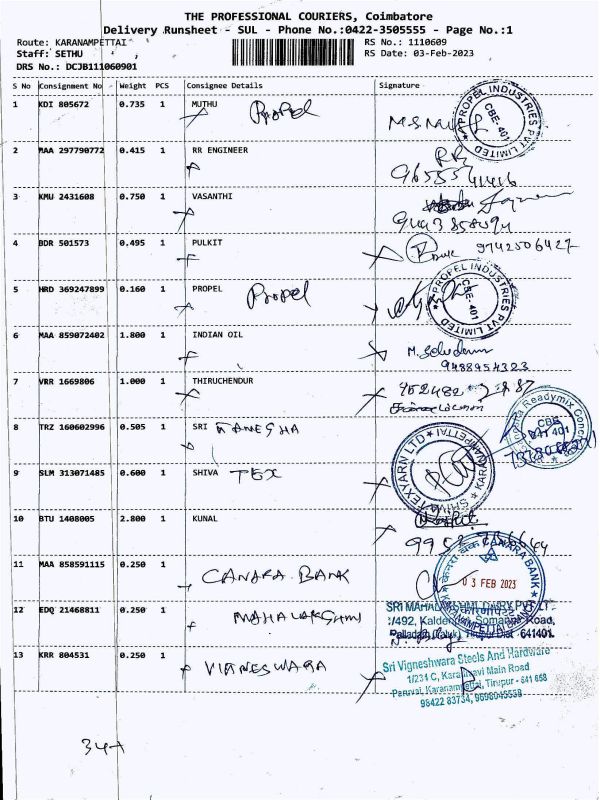 THE PROFESSIONAL COURIERS, Coimbatore
Delivery Runsheet - SUL - Phone No.:0422-3505555 - Page No.:1
Route: KARANAMPETTAI
RS No.: 1110609
Staff: SETHU
RS Date: 03-Feb-2023
DRS No.: DCJB111060901
S No Consignment No Weight PCS Consignee Details Signature
1 KDI 805672 0.735 1 MUTHU Propel
PROPEL INDUSTRIES PVT LIMITED CBE-401
2 MAA 297790772 0.415 1 RR ENGINEER RR
3 KMU 2431608 0.750 1 VASANTHI
4 BDR 501573 0.495 1 PULKIT 9742506427
5 HRD 369247899 0.160 1 PROPEL Propel
PROPEL INDUSTRIES PVT LIMITED CBE-401
6 MAA 859072402 1.800 1 INDIAN OIL
9488954323
7 VRR 1669806 1.000 1 THIRUCHENDUR
8 TRZ 160602996 0.505 1 SRI GANESHA
Readymix
9 SLM 313071485 0.600 1 SHIVA TEX
SHIVA TEXYARN LTD KARANAMPETTAI
10 BTU 1408005 2.800 1 KUNAL
11 MAA 858591115 0.250 1 CANARA BANK
CANARA BANK 03 FEB 2023 KARANAMPETTAI BRANCH
12 EDQ 21468811 0.250 1 MAHALAKSHMI
SRI MAHALAKSHMI DAIRY PVT LT
1/492, Somanur Road,
Palladam (Taluk) Tirupur Dist 641401.
13 KRR 804531 0.250 1 VIGNESWARA
Sri Vigneshwara Steels And Hardware
1/234 C, Main Road
Karanampettai, Tirupur - 641 658
98422 83734,